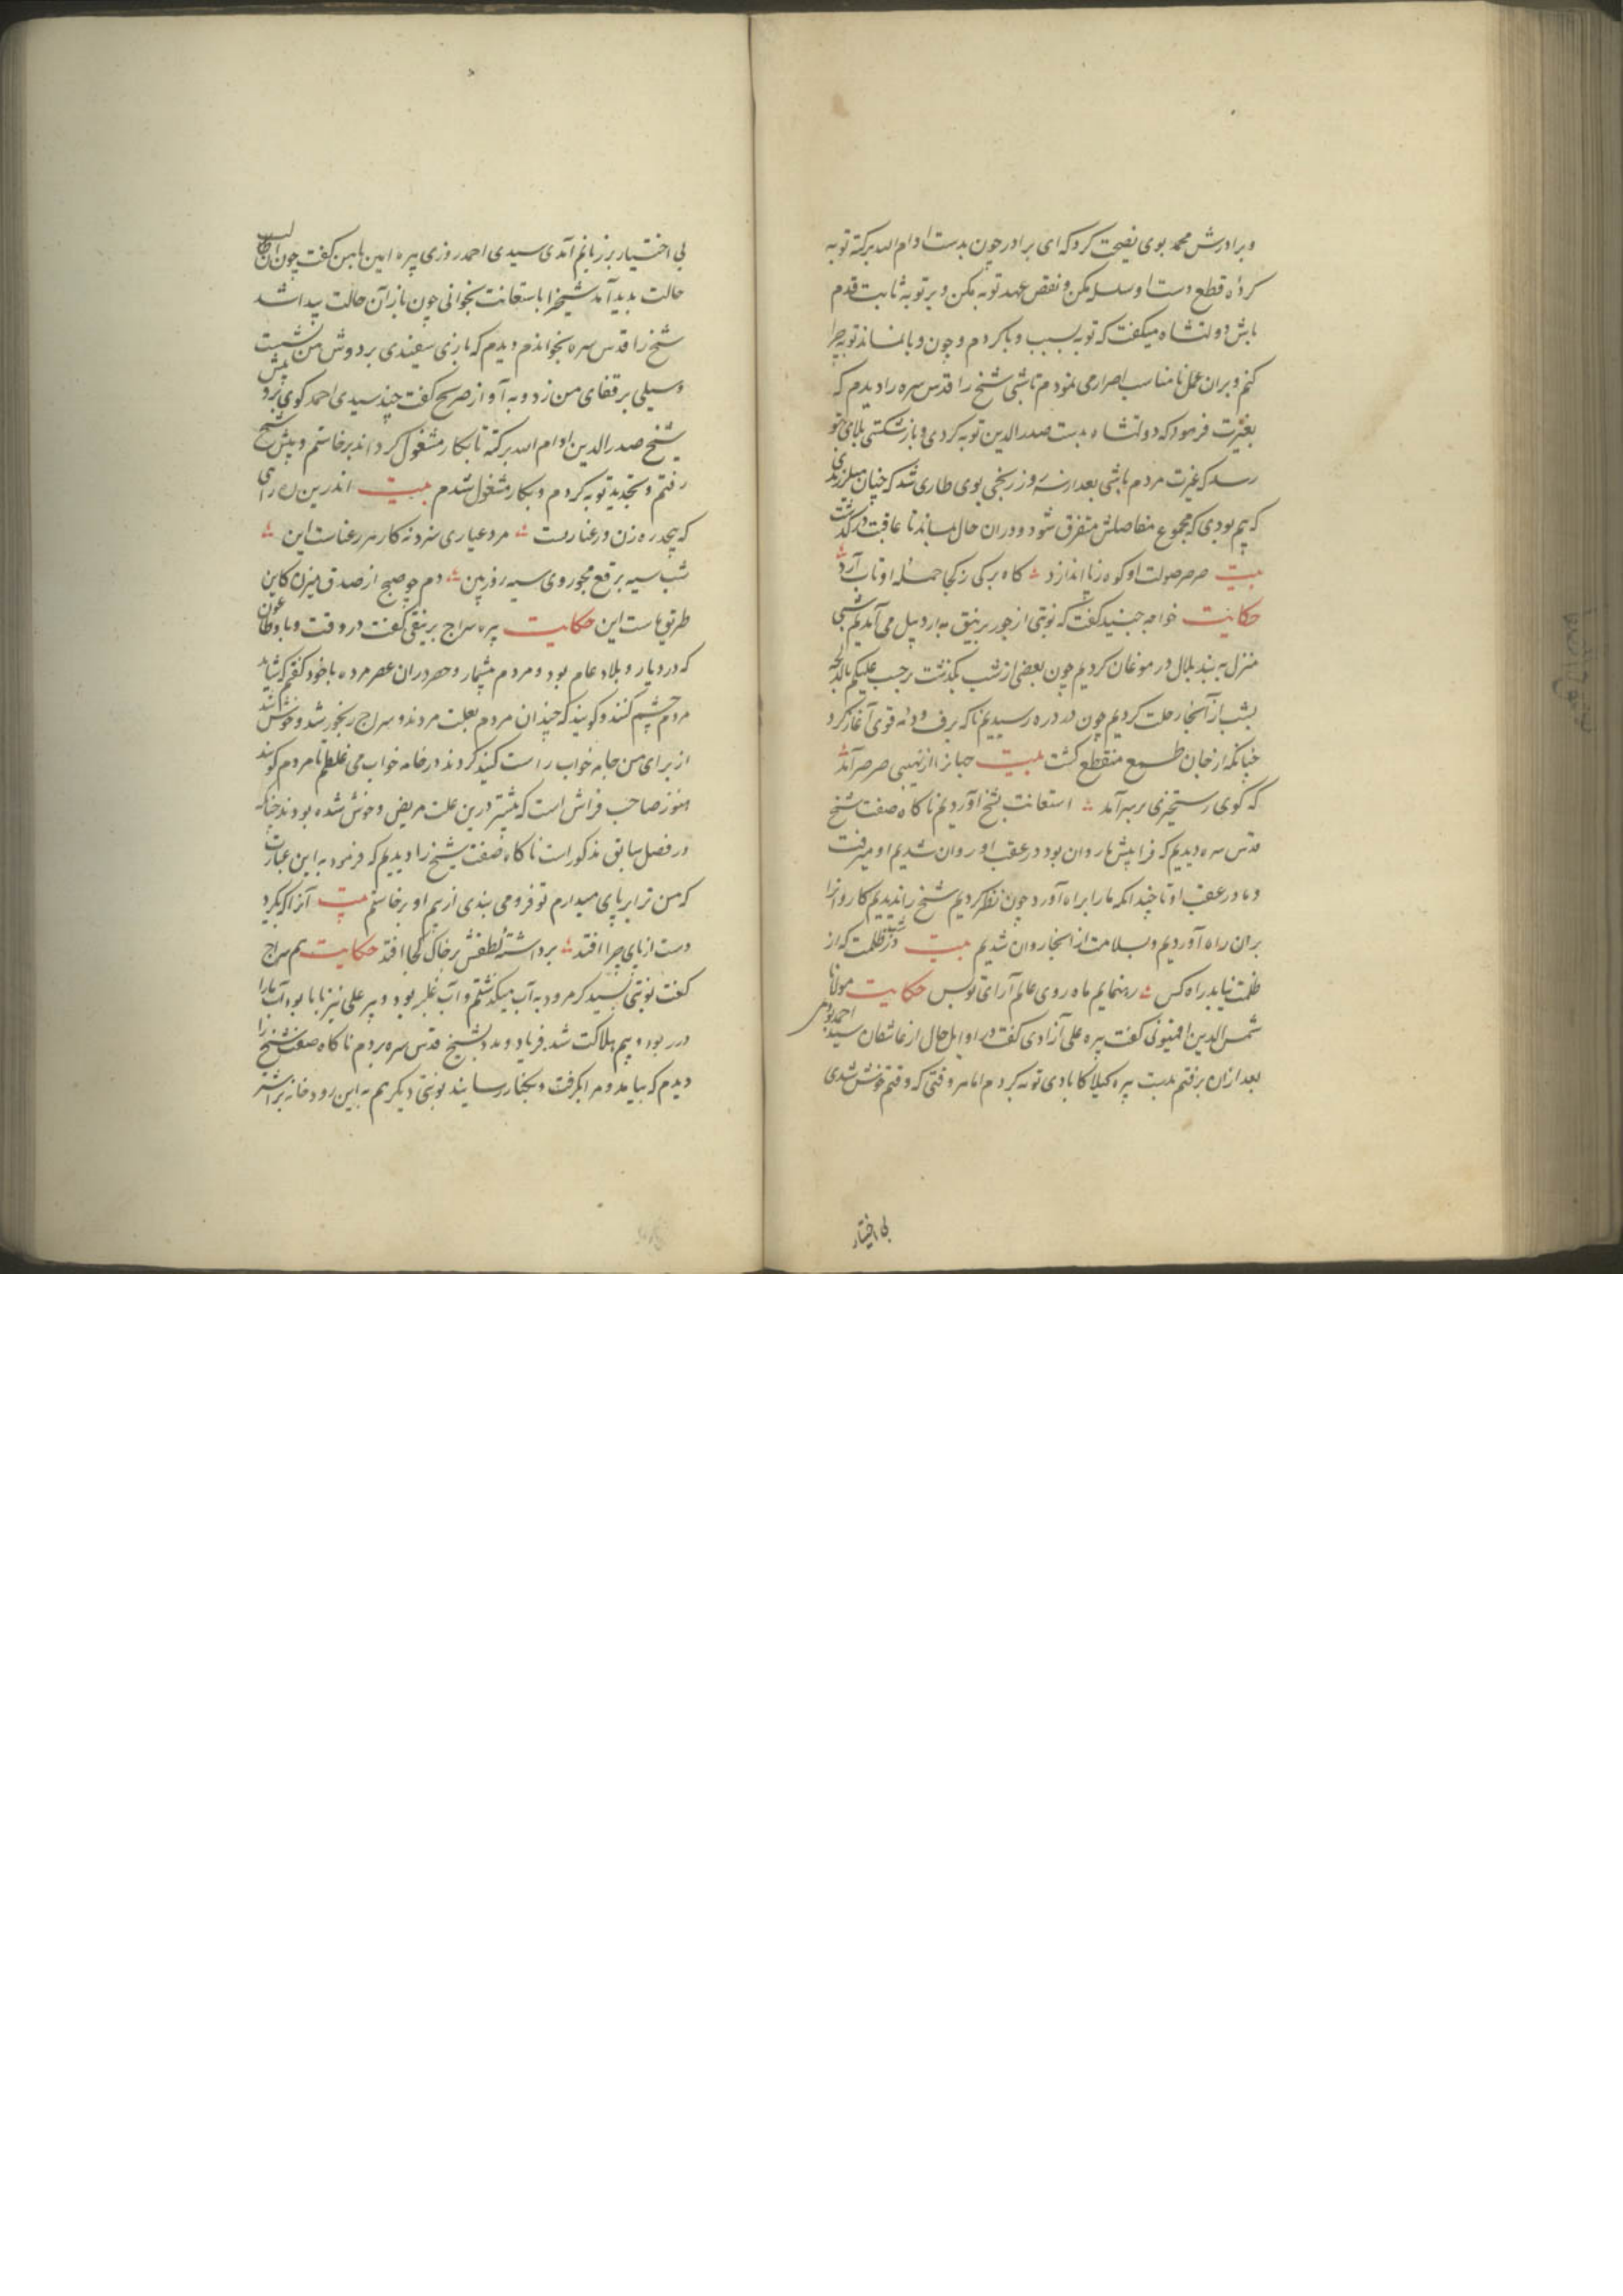 وبرادرش محمد بوی نصیحت کرد که ای برادر چون بدست ادام الله برکته توبه
کردهٔ قطع دست او سلسله مکن و نقض عهد توبه مکن و بر توبه ثابت قدم
باش دولتشاه میکفت که توبه بسبب وبا کردم و چون وبا نماند توبه چرا
کنم و بران عمل نامناسب اصرار می نمودم تا شبی شیخ را قدس سره را دیدم که
بغیرت فرمود که دولتشاه بدست صدرالدین توبه کردی و باز شکستی بلای بتو
رسد که عبرت مردم باشی بعد از سه روز رنجی بوی طاری شد که چنان میلرزیدی
که بیم بودی که مجموع مفاصلش متفرق شود و دران حال بماند تا عاقبت درکذشت
بیت صرصر صولت او کوه ز پا اندازد کاه برکی ز کجا حمله او تاب آرد
حکایت خواجه جنید کفت که نوبتی از جور برنیق به اردبیل می آمدیم شبی
منزل به بند بلال در موغان کردیم چون بعضی از شب بکذشت برحسب علیکم بالدلجه
بشب از آنجا رحلت کردیم چون در دره رسیدیم ناکه برف و دمه قوی آغاز کرد
چنانکه از جان طمع منقطع کشت بیت جانرا از نهیبی صرصر آمد
که کوی رستخیزی بر سر آمد استعانت بشیخ آوردیم ناکاه صفت شیخ
قدس سره دیدیم که فرا پیش ما روان بود در عقب او روان شدیم او میرفت
و ما در عقب او تا چندانکه ما را براه آورد چون نظر کردیم شیخ را ندیدیم کاروانرا
بران راه آوردیم و بسلامت از انجا روان شدیم بیت در شب ظلمت که از
ظلمت نیابد راه کس رهنمایم ماه روی عالم آرای تو بس حکایت مولانا
شمس الدین اقمیونی کفت پیره علی آزادی کفت در اوایل حال از عاشقان سیدی احمد بودمی
بعد ازان برفتم بدست پیره کیلاکابادی توبه کردم اما هر وقتی که وقتم خوش شدی
بی اختیار
بی اختیار بر زبانم آمدی سیدی احمد روزی پیره امین با من کفت چون ان حالت
حالت بدید آمد شیخ را باستعانت بخوانی چون باز آن حالت پیدا شد
شیخ را قدس سره بخواندم دیدم که بازی سفیدی بر دوش من نشست
و سیلی بر قفای من زد و به آواز صریح کفت چند سیدی احمد کوی برو پیش
شیخ صدرالدین ادام الله برکته تا بکار مشغول کرداند برخاستم و پیش شیخ
رفتم و تجدید توبه کردم و بکار مشغول شدم بیت اندرین ره رای
که بیحد ره زن و رعنا رست مرد عیاری سزد نه کار هر رعناست این
شب سیه برقع مجو روی سیه روز ببین دم چو صبح از صدق میزن کاین
طریق ماست این حکایت پیره سراج برنیقی کفت در وقت وبا و طاعون
که در دیار و بلاد عام بود و مردم بیشمار و حصر دران عصر مرده با خود کفتم که شاید
مردم چشم کنند و کویند که چندان مردم بعلت مردند و سراج رنجور نشد و خوش باشد
از برای من جامه خواب راست کنید کردند در جامه خواب می غلطم تا مردم کویند
هنوز صاحب فراش است که پیشتر درین علت مریض و خوش شده بودند چنانکه
در فصل سابق مذکور است ناکاه صفت شیخ را دیدیم که فرمود به این عبارت
که من ترا بر پای میدارم تو فرو می بندی از بیم او برخاستم بیت آنرا که بکیرد
دست از پای چرا افتد برداشتهٔ لطفش بر خاک کجا افتد حکایت هم سراج
کفت نوبتی بسید کرمرود به آب میکذشتم و آب غلبه بود و پیر علی نیز با ما بود آب ما را
در ربود و بیم هلاکت شد فریاد و مدد بشیخ قدس سره بردم ناکاه صفت شیخ را
دیدم که بیامد و مرا بکرفت و بکنار رسانید نوبتی دیکر هم به این رودخانه بر اشتر